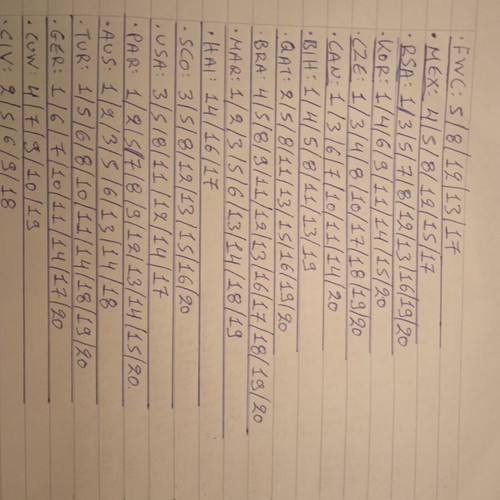 · FWC: 5/8/12/13/17
· MEX: 4/5/8/12/15/17
· RSA: 1/3/5/7/8/12/13/16/19/20
· KOR: 1/4/6/9/11/14/15/20
· CZE: 1/3/4/8/10/17/18/19/20
· CAN: 1/3/6/7/10/11/14/20
· BIH: 1/4/5/8/11/13/19
· QAT: 2/5/8/11/13/15/16/19/20
· BRA: 4/5/8/9/11/12/13/16/17/18/19/20
· MAR: 1/2/3/5/6/13/14/18/19
· HAI: 14/16/17
· SCO: 3/5/8/12/13/15/16/20
· USA: 3/5/8/11/12/14/17
· PAR: 1/2/5/7/8/9/12/13/14/15/20.
· AUS: 1/2/3/5/6/13/14/18
· TUR: 1/5/6/8/10/11/14/18/19/20
· GER: 1/6/7/10/11/14/17/20
· CUW: 4/7/9/10/19
· CIV: 2/5/6/9/18